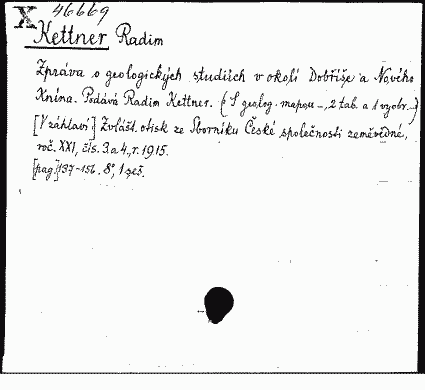 X 46669
Kettner Radim
Zpráva o geologických studiích v okolí Dobříše a Nového
Knína. Podává Radim Kettner. (S geolog. mapou –, 2 tab. a 1 vyobr. –)
[V záhlaví] Zvlášt. otisk ze Sborníku České společnosti zeměvědné,
roč. XXI, čís. 3. a 4., r. 1915.
[pag.] 137–156. 8°, 1 seš.